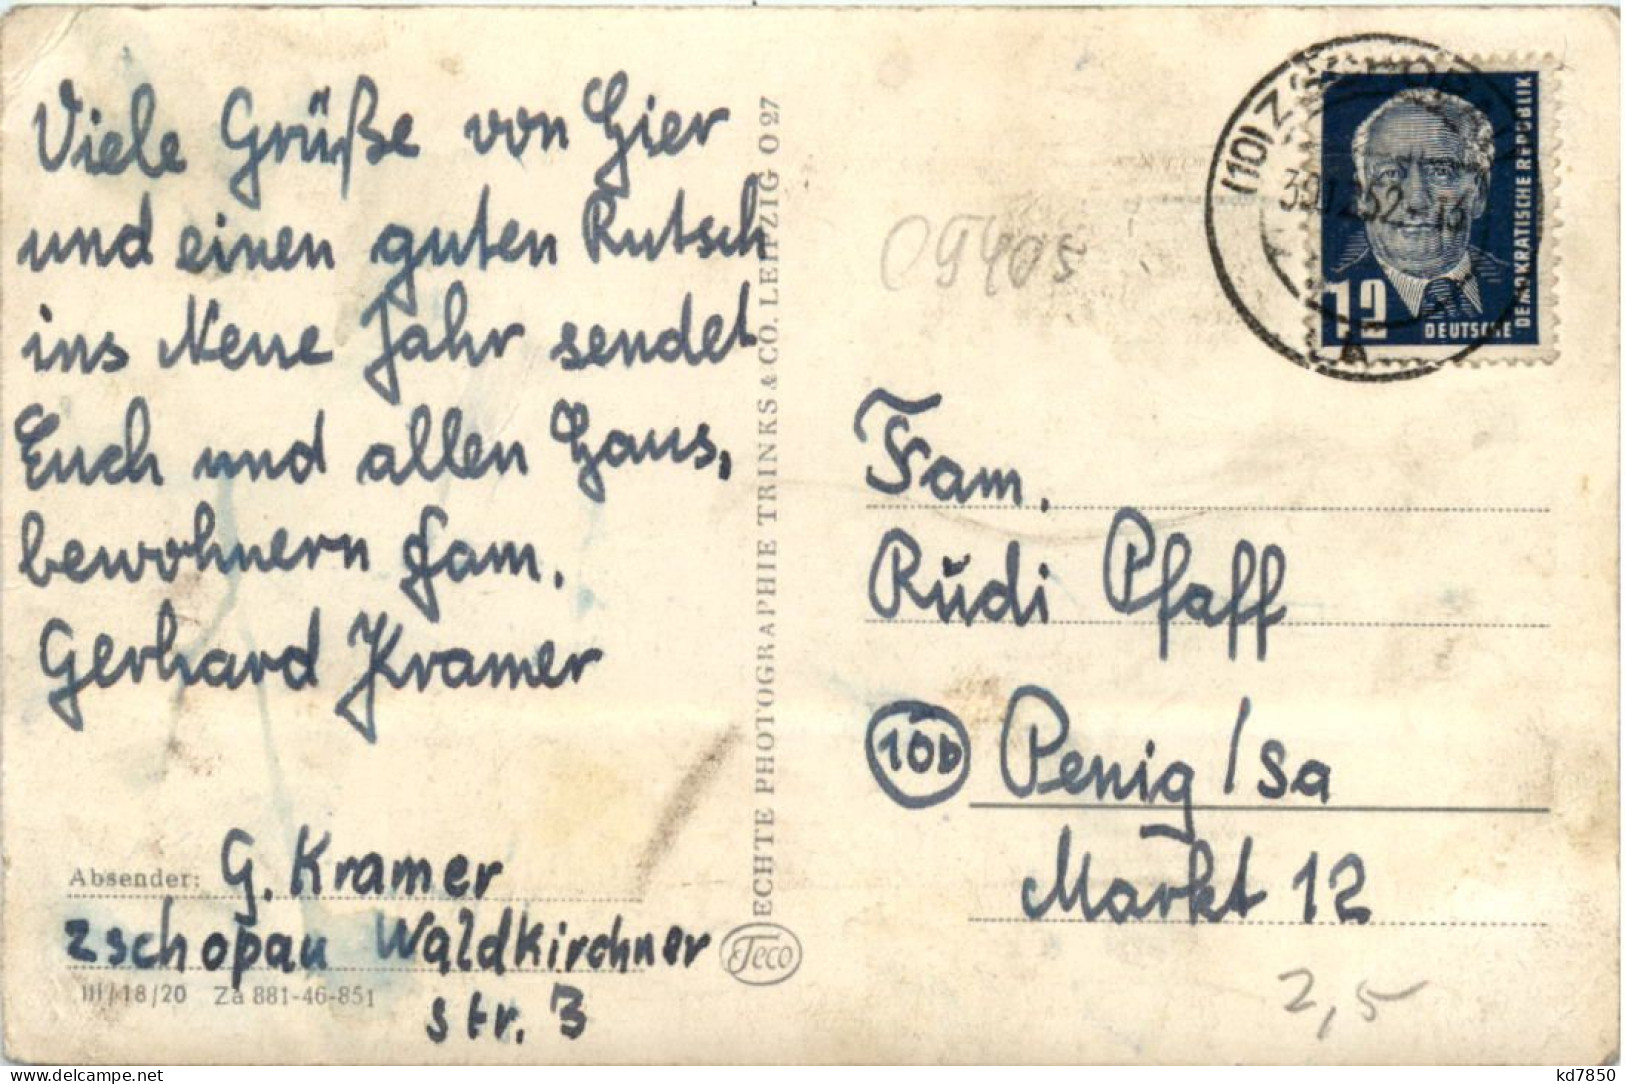 Viele Grüße von hier
und einen guten Rutsch
ins Neue Jahr sendet
Euch und allen Haus,
bewohnern Fam.
Gerhard Kramer
Absender: G. Kramer
Zschopau Waldkirchner
str. 3
III/18/20 Za 881-46-851
ECHTE PHOTOGRAPHIE TRINKS & CO. LEIPZIG O 27
Teco
(10) ZSCHOPAU
30.12.52.-13
A
12
DEUTSCHE
DEMOKRATISCHE REPUBLIK
09405
Fam.
Rudi Pfaff
10b Penig / Sa
Markt 12
2,5
kd7850